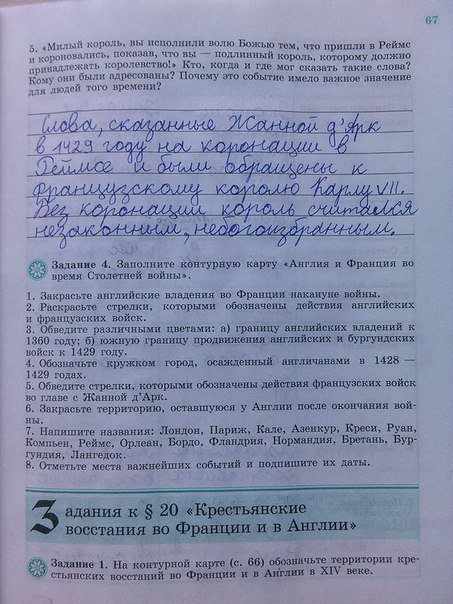 67
5. «Милый король, вы исполнили волю Божью тем, что пришли в Реймс
и короновались, показав, что вы — подлинный король, которому должно
принадлежать королевство!» Кто, когда и где мог сказать такие слова?
Кому они были адресованы? Почему это событие имело важное значение
для людей того времени?
Слова, сказанные Жанной д'Арк
в 1429 году на коронации в
Реймсе и были обращены к
Французскому королю Карлу VII.
Без коронации король считался
незаконным, небогоизбранным.
Задание 4. Заполните контурную карту «Англия и Франция во
время Столетней войны».
1. Закрасьте английские владения во Франции накануне войны.
2. Раскрасьте стрелки, которыми обозначены действия английских
и французских войск.
3. Обведите различными цветами: а) границу английских владений к
1360 году; б) южную границу продвижения английских и бургундских
войск к 1429 году.
4. Обозначьте кружком город, осажденный англичанами в 1428 —
1429 годах.
5. Обведите стрелки, которыми обозначены действия французских войск
во главе с Жанной д'Арк.
6. Закрасьте территорию, оставшуюся у Англии после окончания вой-
ны.
7. Напишите названия: Лондон, Париж, Кале, Азенкур, Креси, Руан,
Компьен, Реймс, Орлеан, Бордо, Фландрия, Нормандия, Бретань, Бур-
гундия, Лангедок.
8. Отметьте места важнейших событий и подпишите их даты.
Задания к § 20 «Крестьянские
восстания во Франции и в Англии»
Задание 1. На контурной карте (с. 66) обозначьте территории кре-
стьянских восстаний во Франции и в Англии в XIV веке.